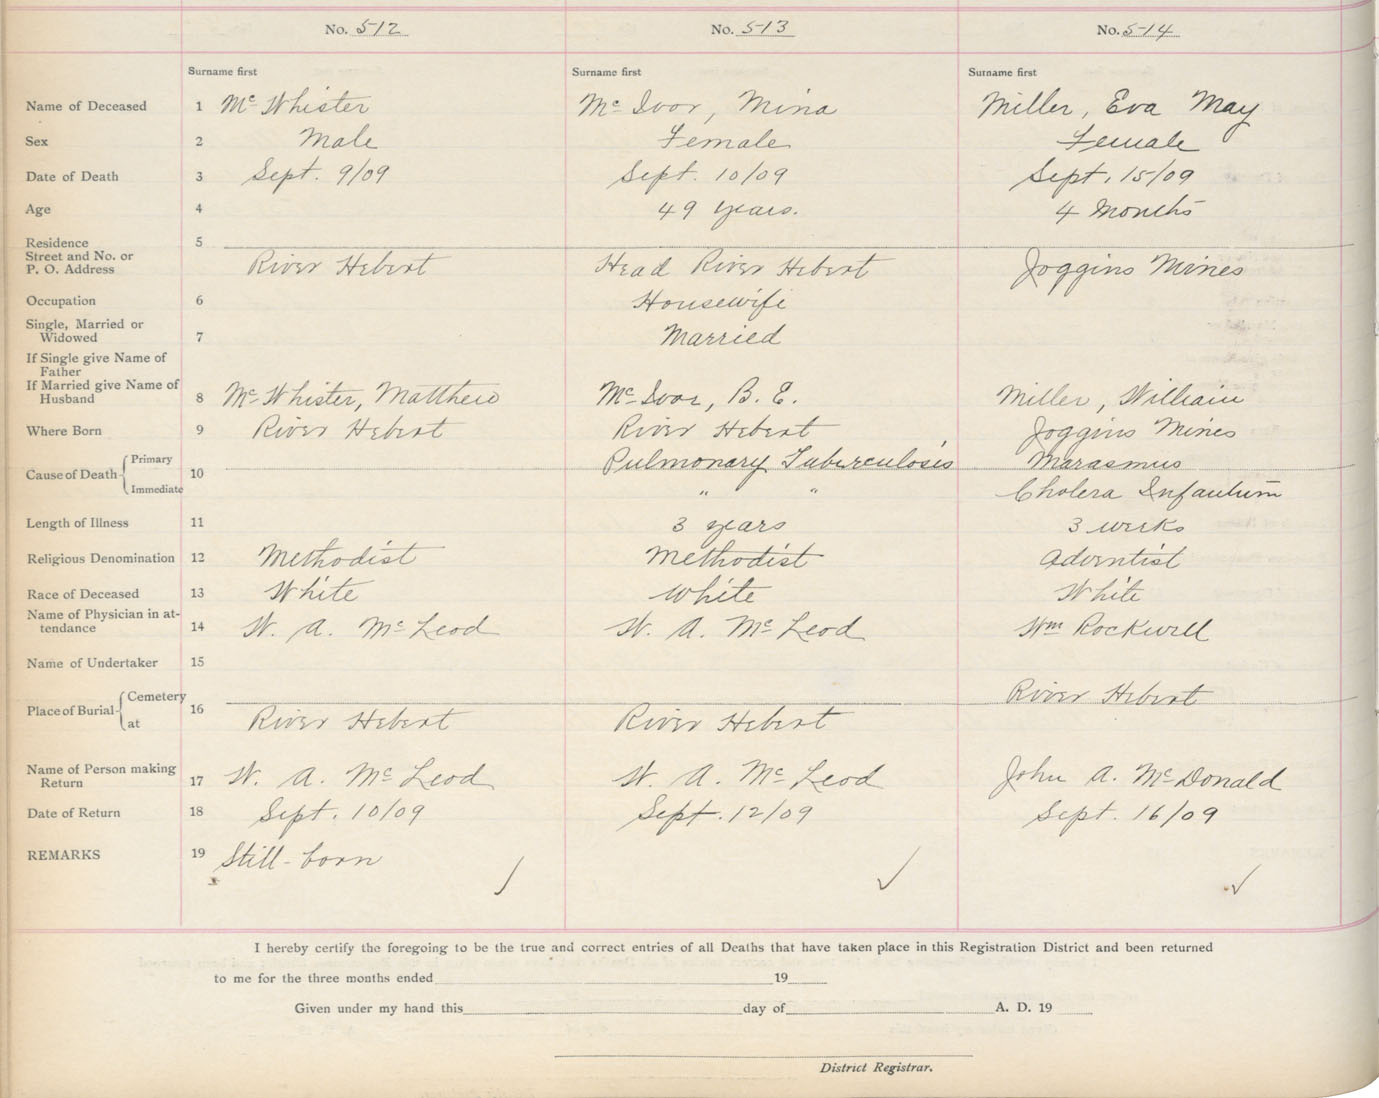 No. 512 No. 513 No. 514
Surname first Surname first Surname first
Name of Deceased 1 Mc Whister Mc Ivor, Mina Miller, Eva May
Sex 2 Male Female Female
Date of Death 3 Sept. 9/09 Sept. 10/09 Sept. 15/09
Age 4 49 years. 4 Months
Residence 5
Street and No. or
P. O. Address River Hebert Head River Hebert Joggins Mines
Occupation 6 Housewife
Single, Married or
Widowed 7 Married
If Single give Name of
Father
If Married give Name of
Husband 8 Mc Whister, Matthew Mc Ivor, B. E. Miller, William
Where Born 9 River Hebert River Hebert Joggins Mines
Cause of Death Primary 10 Pulmonary Tuberculosis Marasmus
Immediate " " Cholera Infantum
Length of Illness 11 3 years 3 weeks
Religious Denomination 12 Methodist Methodist Adventist
Race of Deceased 13 White White White
Name of Physician in at-
tendance 14 W. A. McLeod W. A. McLeod Wm Rockwell
Name of Undertaker 15
Place of Burial Cemetery 16 River Hebert
at River Hebert River Hebert
Name of Person making
Return 17 W. A. McLeod W. A. McLeod John A. McDonald
Date of Return 18 Sept. 10/09 Sept. 12/09 Sept. 16/09
REMARKS 19 Still-born
I hereby certify the foregoing to be the true and correct entries of all Deaths that have taken place in this Registration District and been returned
to me for the three months ended 19
Given under my hand this day of A. D. 19
District Registrar.